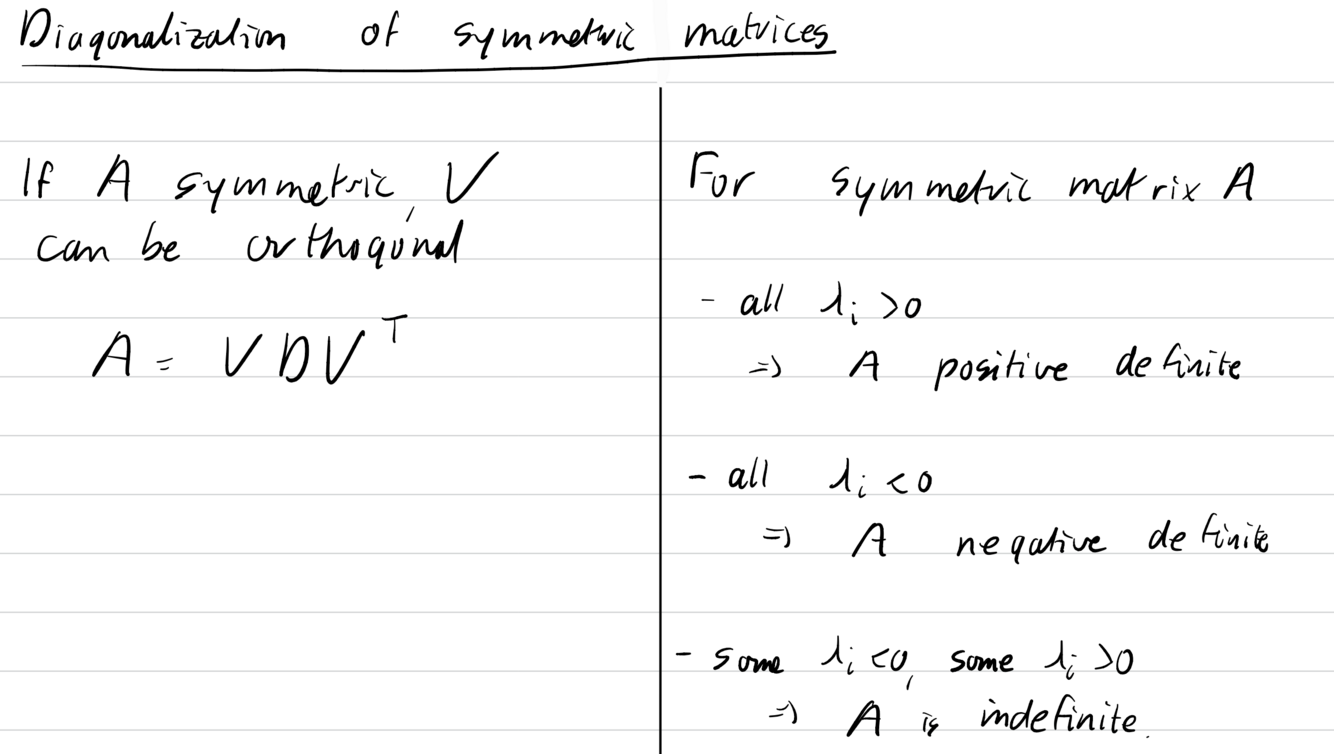 Diagonalization of symmetric matrices
If A symmetric, V
can be orthogonal
A = V D V^T
For symmetric matrix A
- all λ_i > 0
⇒ A positive definite
- all λ_i < 0
⇒ A negative definite
- some λ_i < 0, some λ_i > 0
⇒ A is indefinite.